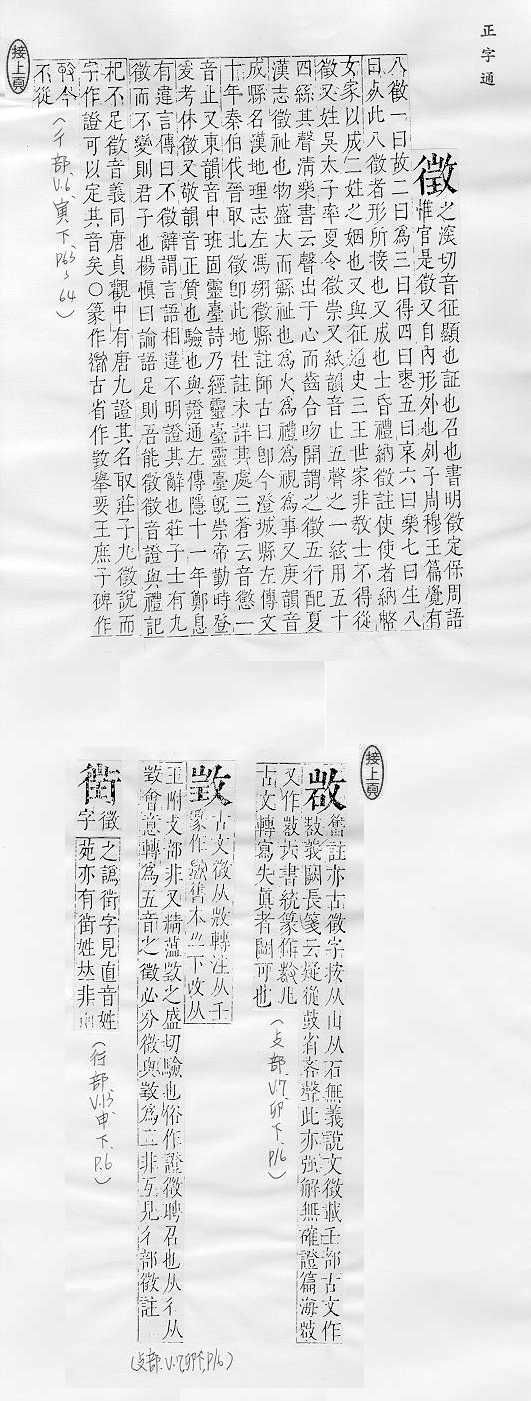 正字通
徵
之深切音征顯也証也召也書明徵定保周語
惟官是徵又自內形外也列子周穆王篇覺有
八徵一曰故二曰爲三曰得四曰喪五曰哀六曰樂七曰生八
曰死此八徵者形所接也又成也士昏禮納徵註使使者納幣
女家以成二姓之姻也又與征通史三王世家非教士不得從
徵又姓吳太子率更令徵崇又紙韻音止五聲之一絃用五十
四絲其聲清樂書云聲出于心而齒合吻開謂之徵五行配夏
漢志徵祉也物盛大而繇祉也爲火爲禮爲視爲事又庚韻音
成縣名漢地理志左馮翊徵縣註師古曰卽今澄城縣左傳文
十年秦伯伐晉取北徵卽此地杜註未詳其處三蒼云音懲一
音止又東韻音中班固靈臺詩乃經靈臺靈臺旣崇帝勤時登
爰考休徵又敬韻音正質也驗也與證通左傳隱十一年鄭息
有違言傳曰不徵辭謂言語相違不明證其辭也莊子士有九
徵而不變則君子也楊愼曰論語足則吾能徵徵音證與禮記
杞不足徵音義同唐貞觀中有唐九證其名取莊子九徵說而
字作證可以定其音矣○篆作古省作敳舉要王庶子碑作
今
不從
(彳部.V.6.寅下.P63～64)
接上頁
接上頁
舊註亦古徵字按从山从石無義說文徵載壬部古文作
義闕長箋云疑從鼓省吝聲此亦強解無確證篇海
又作六書統篆作凡
古文轉寫失眞者闕可也
(攴部.V.7.卯下.P.16)
古文徵从轉注从壬
篆作舊本下攺从
王附攴部非又精薀之盛切驗也俗作證徵聘召也从彳从
會意轉爲五音之徵必分徵與爲二非互見彳部徵註
(攴部.V.7卯下,P.16)
徵之譌字見直音姓
字苑亦有姓㚘非
(行部.V.13.申下.P.6)